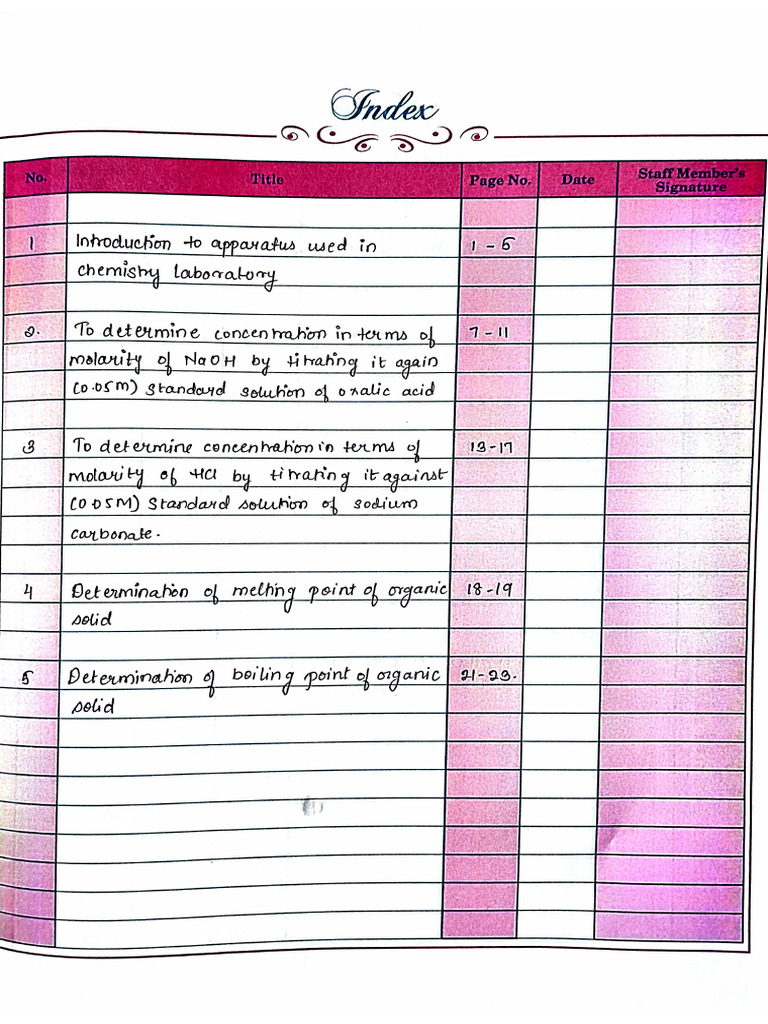 Index
No. Title Page No. Date Staff Member's Signature
1 Introduction to apparatus used in 1 - 6
chemistry laboratory
2. To determine concentration in terms of 7 - 11
molarity of NaOH by titrating it again
(0.05M) Standard solution of oxalic acid
3 To determine concentration in terms of 13-17
molarity of HCl by titrating it against
(0.05M) Standard solution of sodium
carbonate.
4 Determination of melting point of organic 18-19
solid
5 Determination of boiling point of organic 21-23.
solid